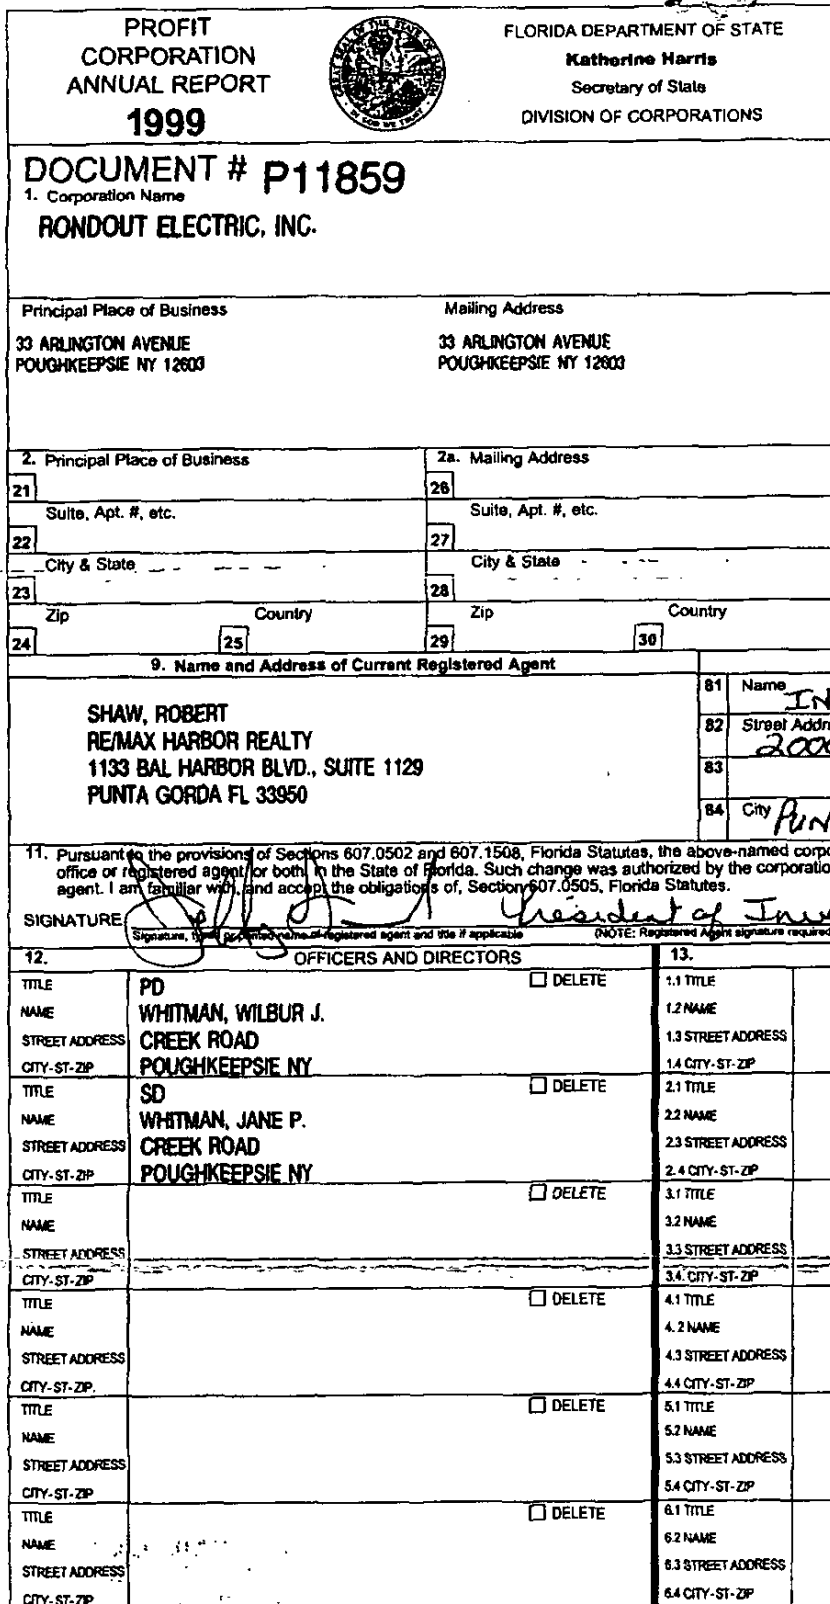 PROFIT
CORPORATION
ANNUAL REPORT
1999
FLORIDA DEPARTMENT OF STATE
Katherine Harris
Secretary of State
DIVISION OF CORPORATIONS
DOCUMENT # P11859
1. Corporation Name
RONDOUT ELECTRIC, INC.
Principal Place of Business
33 ARLINGTON AVENUE
POUGHKEEPSIE NY 12603
Mailing Address
33 ARLINGTON AVENUE
POUGHKEEPSIE NY 12603
2. Principal Place of Business
2a. Mailing Address
21
26
Suite, Apt. #, etc.
Suite, Apt. #, etc.
22
27
City & State
City & State
23
28
Zip
Country
Zip
Country
24
25
29
30
9. Name and Address of Current Registered Agent
SHAW, ROBERT
RE/MAX HARBOR REALTY
1133 BAL HARBOR BLVD., SUITE 1129
PUNTA GORDA FL 33950
81 Name
82 Street Addr
83
84 City
11. Pursuant to the provisions of Sections 607.0502 and 607.1508, Florida Statutes, the above-named corpo
office or registered agent, or both, in the State of Florida. Such change was authorized by the corporatio
agent. I am familiar with, and accept the obligations of, Section 607.0505, Florida Statutes.
SIGNATURE President of
Signature, typed or printed name of registered agent and title if applicable
(NOTE: Registered Agent signature required
12. OFFICERS AND DIRECTORS
13.
TITLE PD DELETE
NAME WHITMAN, WILBUR J.
STREET ADDRESS CREEK ROAD
CITY-ST-ZIP POUGHKEEPSIE NY
1.1 TITLE
1.2 NAME
1.3 STREET ADDRESS
1.4 CITY-ST-ZIP
TITLE SD DELETE
NAME WHITMAN, JANE P.
STREET ADDRESS CREEK ROAD
CITY-ST-ZIP POUGHKEEPSIE NY
2.1 TITLE
2.2 NAME
2.3 STREET ADDRESS
2.4 CITY-ST-ZIP
TITLE DELETE
NAME
STREET ADDRESS
CITY-ST-ZIP
3.1 TITLE
3.2 NAME
3.3 STREET ADDRESS
3.4. CITY-ST-ZIP
TITLE DELETE
NAME
STREET ADDRESS
CITY-ST-ZIP.
4.1 TITLE
4.2 NAME
4.3 STREET ADDRESS
4.4 CITY-ST-ZIP
TITLE DELETE
NAME
STREET ADDRESS
CITY-ST-ZIP
5.1 TITLE
5.2 NAME
5.3 STREET ADDRESS
5.4 CITY-ST-ZIP
TITLE DELETE
NAME
STREET ADDRESS
CITY-ST-ZIP
6.1 TITLE
6.2 NAME
6.3 STREET ADDRESS
6.4 CITY-ST-ZIP